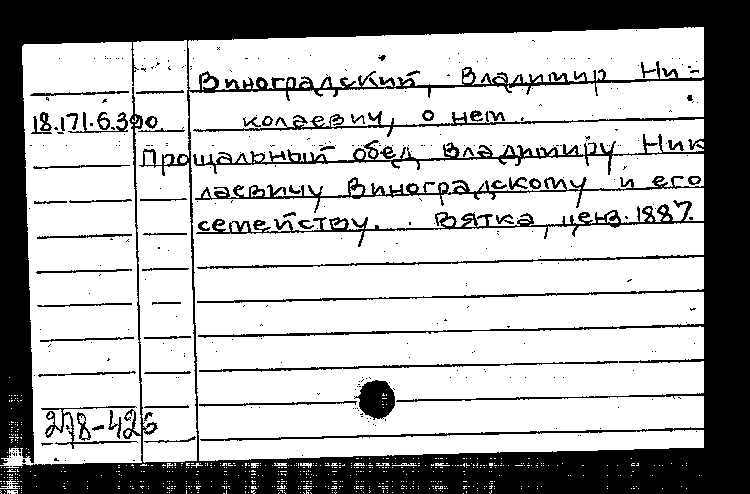 Виноградский, Владимир Ни-
18.171.6.390. колаевич, о нем.
Прощальный обед Владимиру Ник
лаевичу Виноградскому и его
семейству. Вятка, ценз. 1887.
278-426